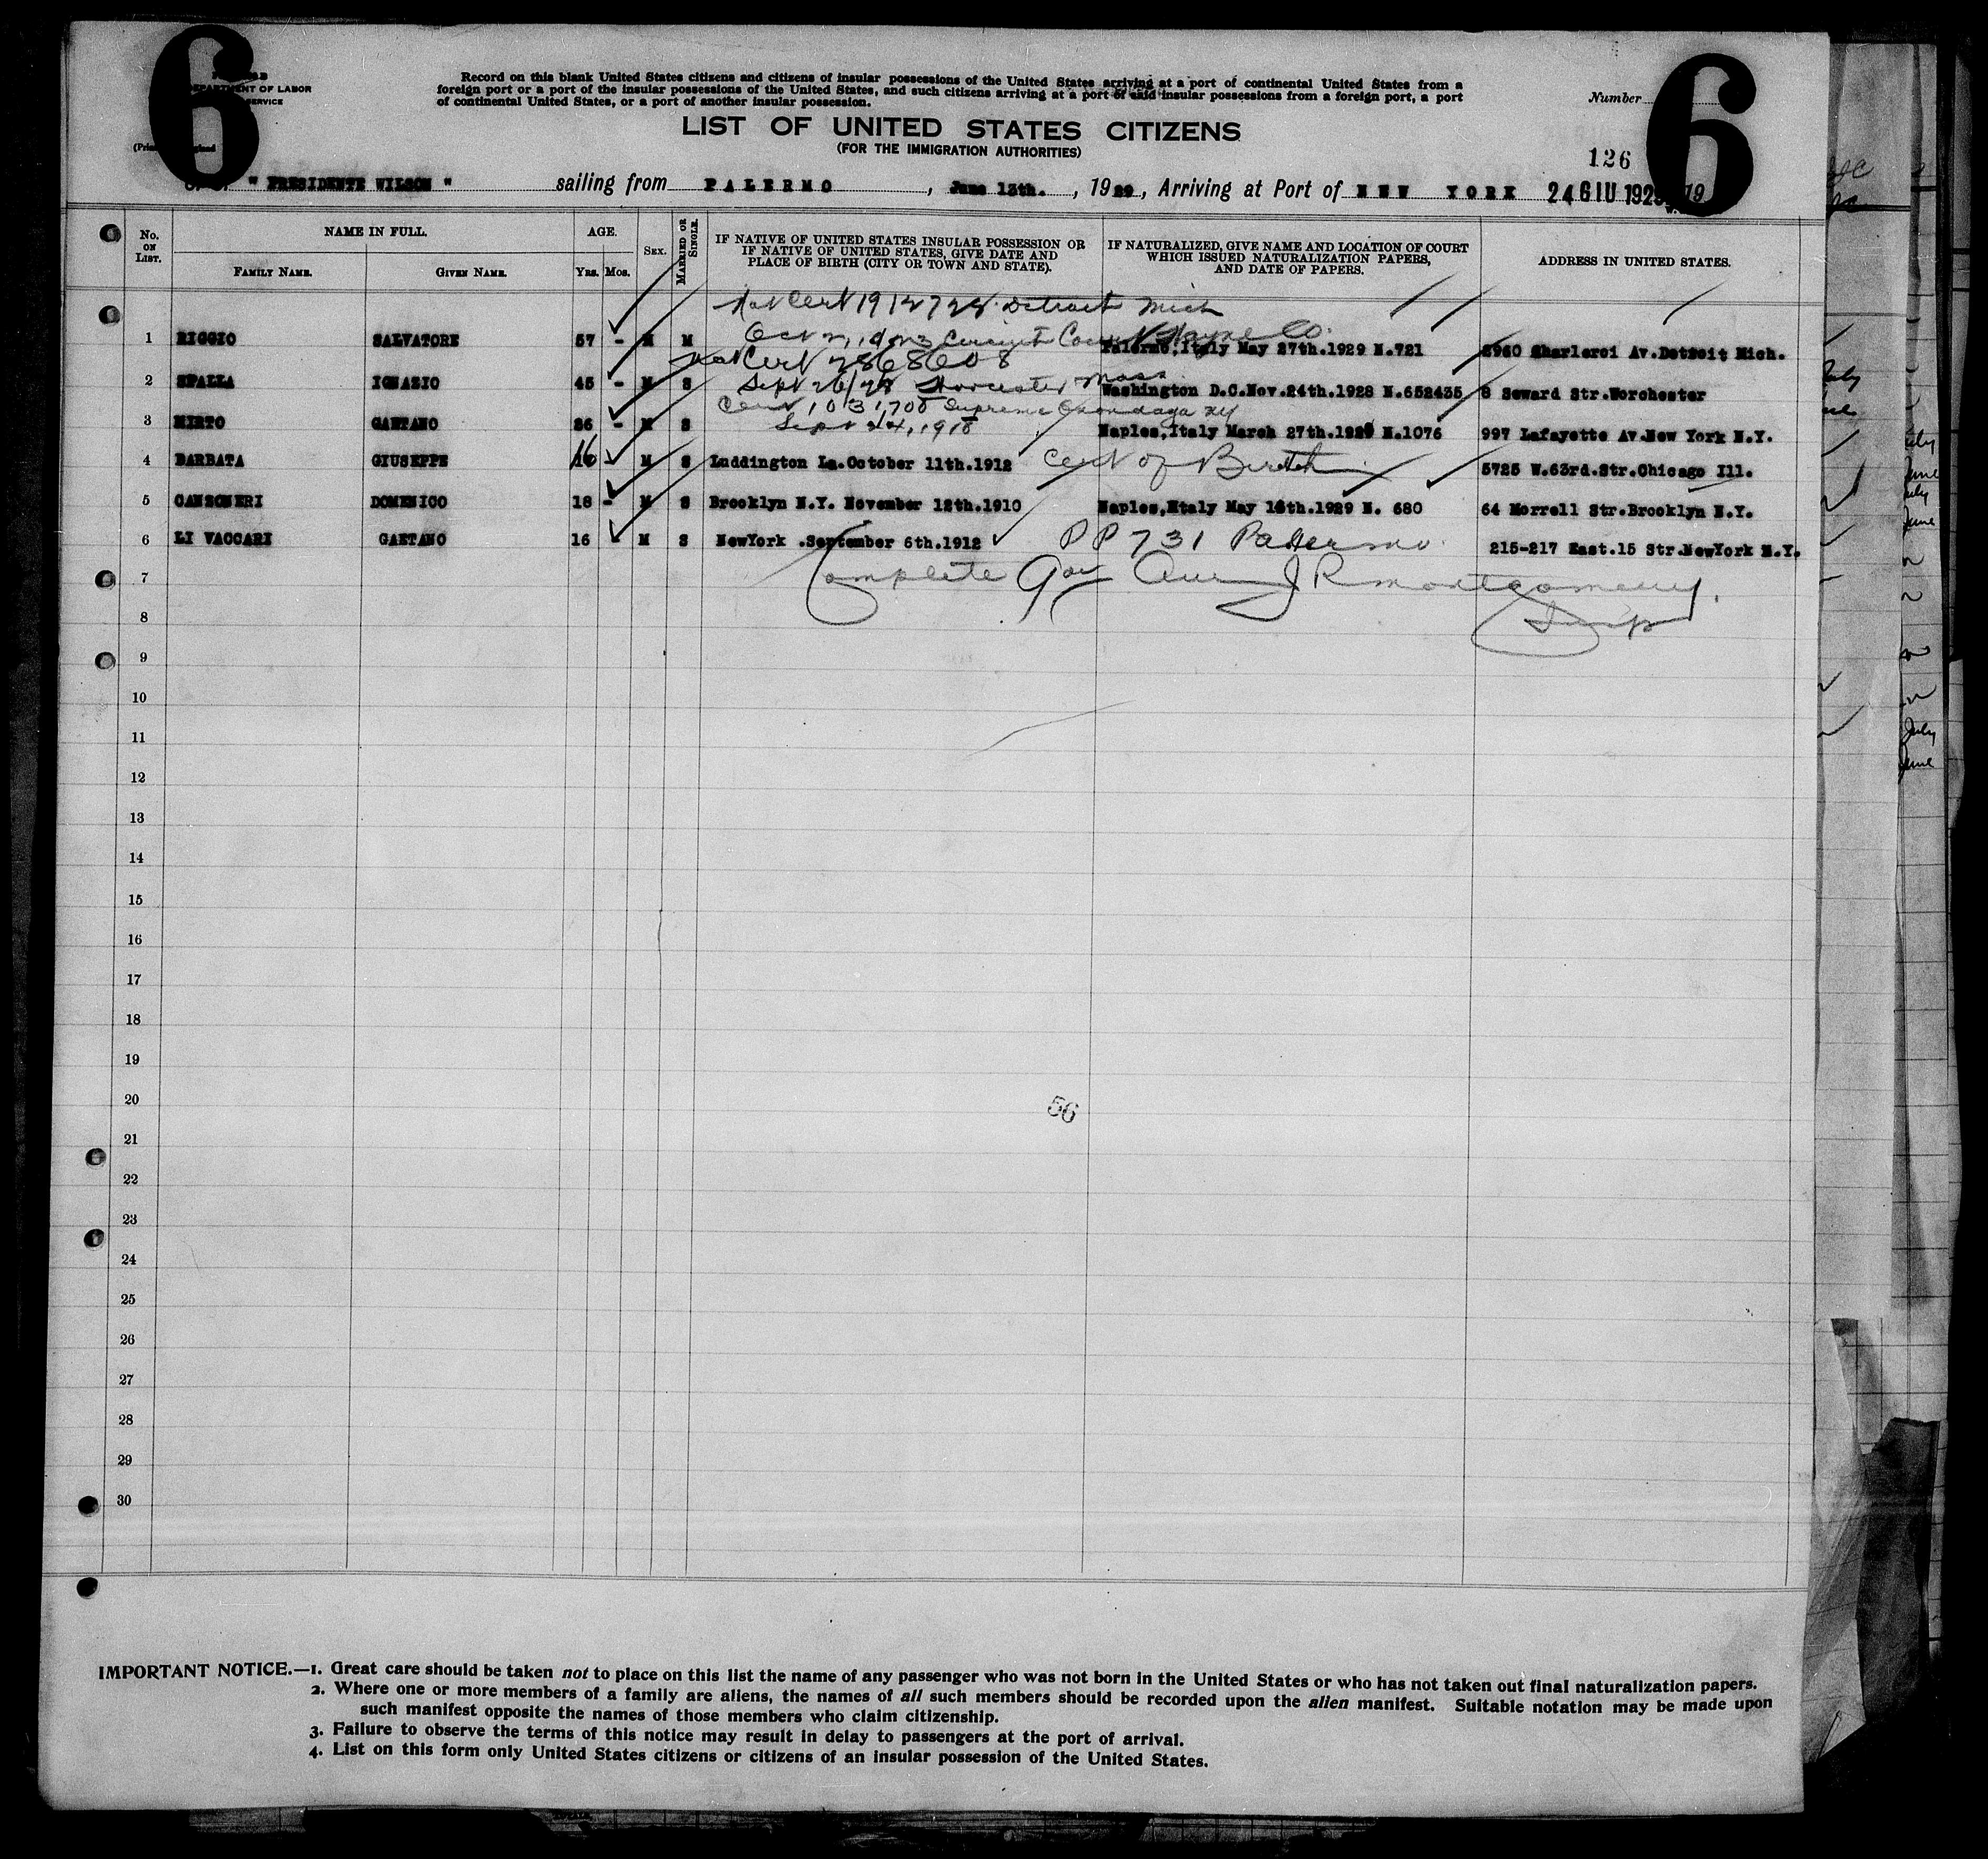 6
6
DEPARTMENT OF LABOR
SERVICE
Record on this blank United States citizens and citizens of insular possessions of the United States arriving at a port of continental United States from a
foreign port or a port of the insular possessions of the United States, and such citizens arriving at a port of said insular possessions from a foreign port, a port
of continental United States, or a port of another insular possession.
Number
LIST OF UNITED STATES CITIZENS
(FOR THE IMMIGRATION AUTHORITIES)
126
" PRESIDENTE WILSON " sailing from PALERMO, June 13th., 1929, Arriving at Port of NEW YORK 24 GIU 1929 19
No. ON LIST. NAME IN FULL. FAMILY NAME. GIVEN NAME. AGE. YRS. MOS. SEX. MARRIED OR SINGLE. IF NATIVE OF UNITED STATES INSULAR POSSESSION OR IF NATIVE OF UNITED STATES, GIVE DATE AND PLACE OF BIRTH (CITY OR TOWN AND STATE). IF NATURALIZED, GIVE NAME AND LOCATION OF COURT WHICH ISSUED NATURALIZATION PAPERS, AND DATE OF PAPERS. ADDRESS IN UNITED STATES.
Nat Cert 1912728 Detroit Mich
1 RIGGIO SALVATORE 57 - M M Oct 2, 1923 Circuit Court Wayne Co. Palermo,Italy May 27th.1929 N.721 Charleroi Av.Detroit Mich.
Nat Cert 2868608
2 SPALLA IGNAZIO 45 - M S Sept 26/28 Worcester Mass Washington D.C.Nov.24th.1928 N.652435 8 Seward Str.Worchester
Cert 1031708 Supreme Onondaga NY
3 MIRTO GAETANO 36 - M S Sept 24, 1918 Naples,Italy March 27th.1929 N.1076 997 Lafayette Av.New York N.Y.
4 BARBATA GIUSEPPE 16 - M S Luddington La.October 11th.1912 Cert of Birth 5725 W.63rd.Str.Chicago Ill.
5 CANZONERI DOMENICO 18 - M S Brooklyn N.Y. November 12th.1910 Naples,Italy May 16th.1929 N. 680 64 Morrell Str.Brooklyn N.Y.
6 LI VACCARI GAETANO 16 M S NewYork .September 6th.1912 PP 731 Palermo 215-217 East.15 Str.NewYork N.Y.
7 Complete J R Montgomery
8 Insp
9
10
11
12
13
14
15
16
17
18
19
20 56
21
22
23
24
25
26
27
28
29
30
IMPORTANT NOTICE.—1. Great care should be taken not to place on this list the name of any passenger who was not born in the United States or who has not taken out final naturalization papers.
2. Where one or more members of a family are aliens, the names of all such members should be recorded upon the alien manifest. Suitable notation may be made upon
such manifest opposite the names of those members who claim citizenship.
3. Failure to observe the terms of this notice may result in delay to passengers at the port of arrival.
4. List on this form only United States citizens or citizens of an insular possession of the United States.